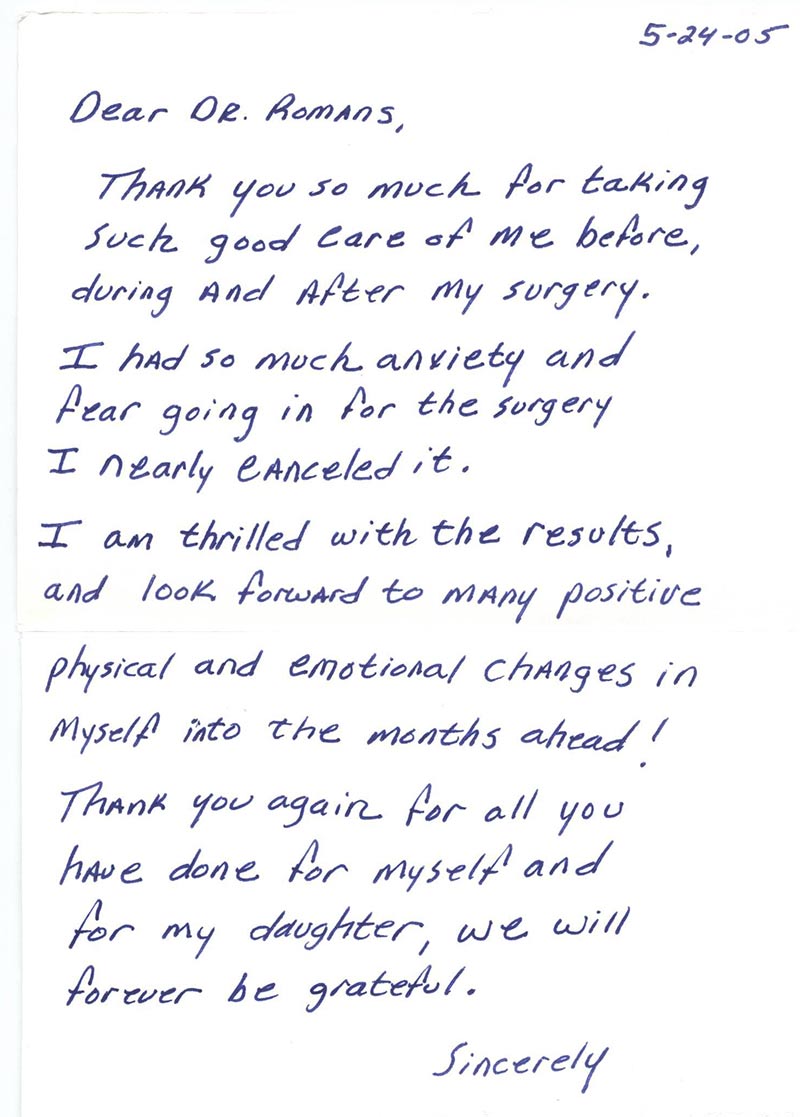 5-24-05
Dear DR. Romans,
Thank you so much for taking
such good care of me before,
during and after my surgery.
I had so much anxiety and
fear going in for the surgery
I nearly canceled it.
I am thrilled with the results,
and look forward to many positive
physical and emotional changes in
myself into the months ahead!
Thank you again for all you
have done for myself and
for my daughter, we will
forever be grateful.
Sincerely